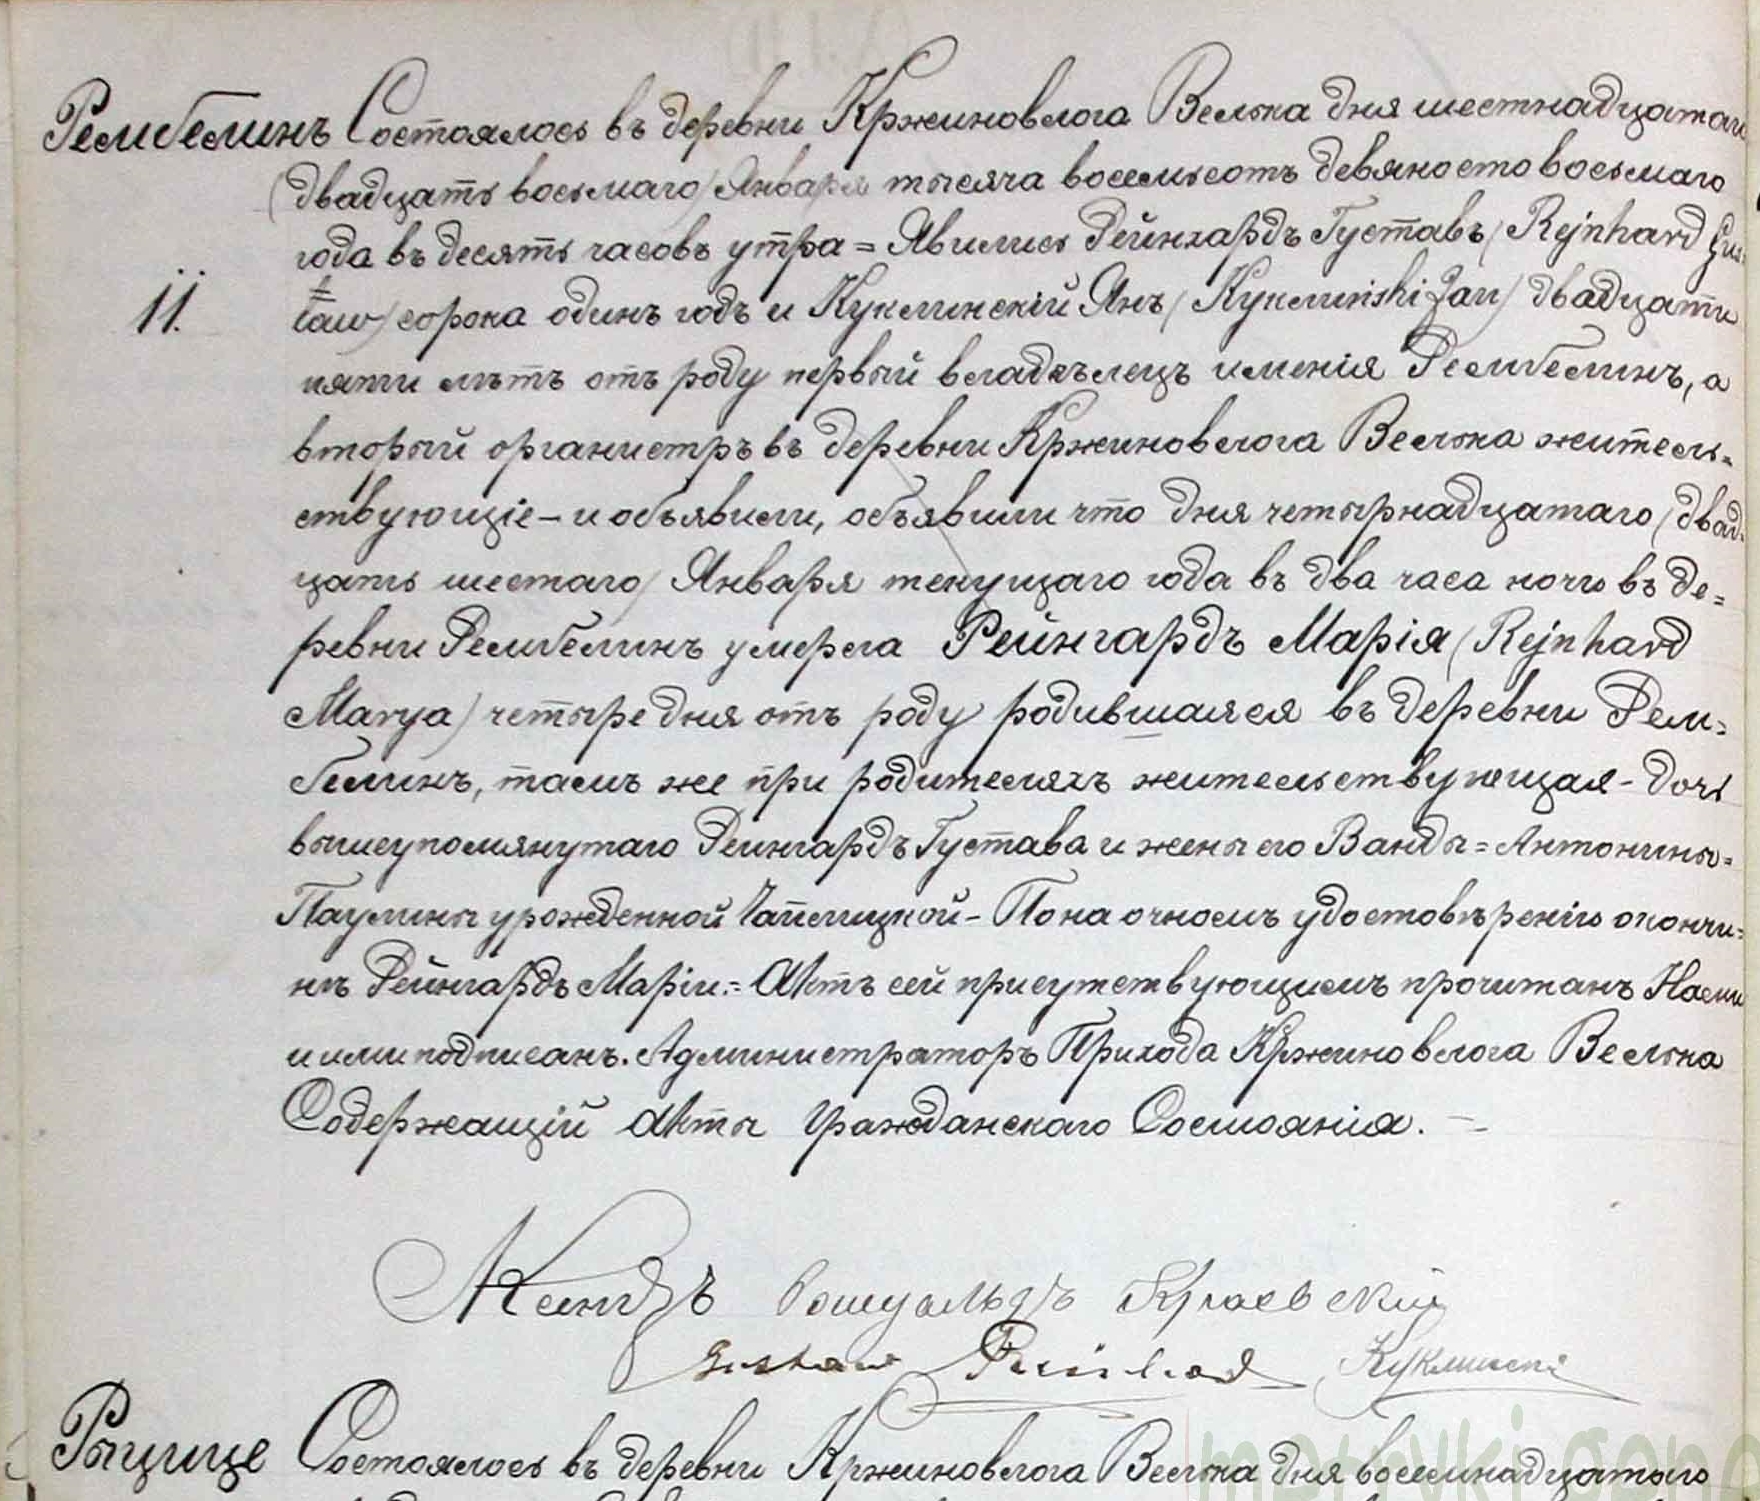 Рембелинъ Состоялось въ деревни Кржиновлога Велька дня шестнадцатаго
(двадцать восьмаго) Января тысяча восемьсотъ девяносто восьмаго
года въ десять часовъ утра = Явились Рейнхардъ Густавъ (Rejnhard Gus=
11. taw) сорока одинъ годъ и Куклинскій Янъ (Kukliński Jan) двадцати
пяти лѣтъ отъ роду первый владѣлецъ именія Рембелинъ, а
вторый органистръ въ деревни Кржиновлога Велька житель=
ствующіе - и объявили, объявили что дня четырнадцатаго (двад=
цать шестаго) Января текущаго года въ два часа ночи въ де=
ревни Рембелинъ умерла Рейнгардъ Марія (Rejnhard
Marya) четыре дня отъ роду родившаяся въ деревни Рем=
белинъ, тамъ же при родителяхъ жительствующая - дочь
вышеупомянутаго Рейнгардъ Густава и жены его Ванды = Антонины =
Паулины урожденной Чаплицкой - По наочномъ удостовѣреніи о кончи=
нѣ Рейнгардъ Маріи. = Актъ сей присутствующимъ прочитанъ Нами
и ими подписанъ. Администраторъ Прихода Кржиновлога Велька
Содержащій Акты Гражданскаго Состоянія. -
Ксендзъ Ромуальдъ Краевскій
Gustaw Rejnhard Куклински
Рыцице Состоялось въ деревни Кржиновлога Велька дня восемнадцатаго
metryki.gene